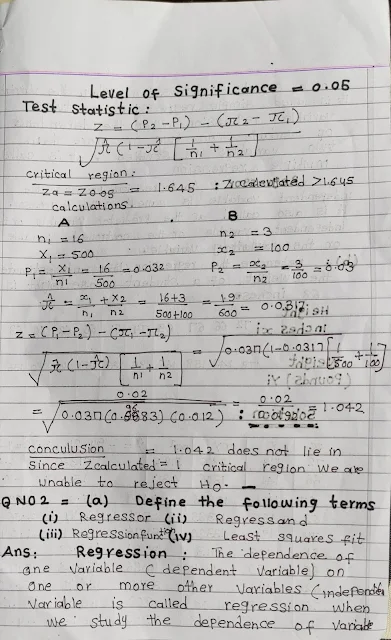 Level of Significance = 0.05
Test Statistic:
Z = (P2 - P1) - (π2 - π1)
√π̂ (1-π̂ [1/n1 + 1/n2]
critical region:
Zα = Z0.05 = 1.645 : Zcalculated > 1.645
calculations.
A B
n1 = 16 n2 = 3
X1 = 500 x2 = 100
P1 = X1/n1 = 16/500 = 0.032 P2 = x2/n2 = 3/100 = 0.03
π̂ = x1 + x2 / n1 n2 = 16+3 / 500+100 = 19/600 = 0.0317
Z = (P1 - P2) - (π1 - π2)
√π̂ (1-π̂) [1/n1 + 1/n2] = √0.0317(1-0.0317)[1/500 + 1/100]
= 0.02 / √0.0317(0.9683)(0.012) : 0.02 = 1.042
conculusion = 1.042 does not lie in
since Zcalculated = 1 critical region we are
unable to reject H0.
Q NO2 = (a) Define the following terms
(i) Regressor (ii) Regressand
(iii) Regression funt (iv) Least squares fit
Ans: Regression : The dependence of
one variable (dependent variable) on
one or more other variables (independen
variable is called regression when
we study the dependence of variable